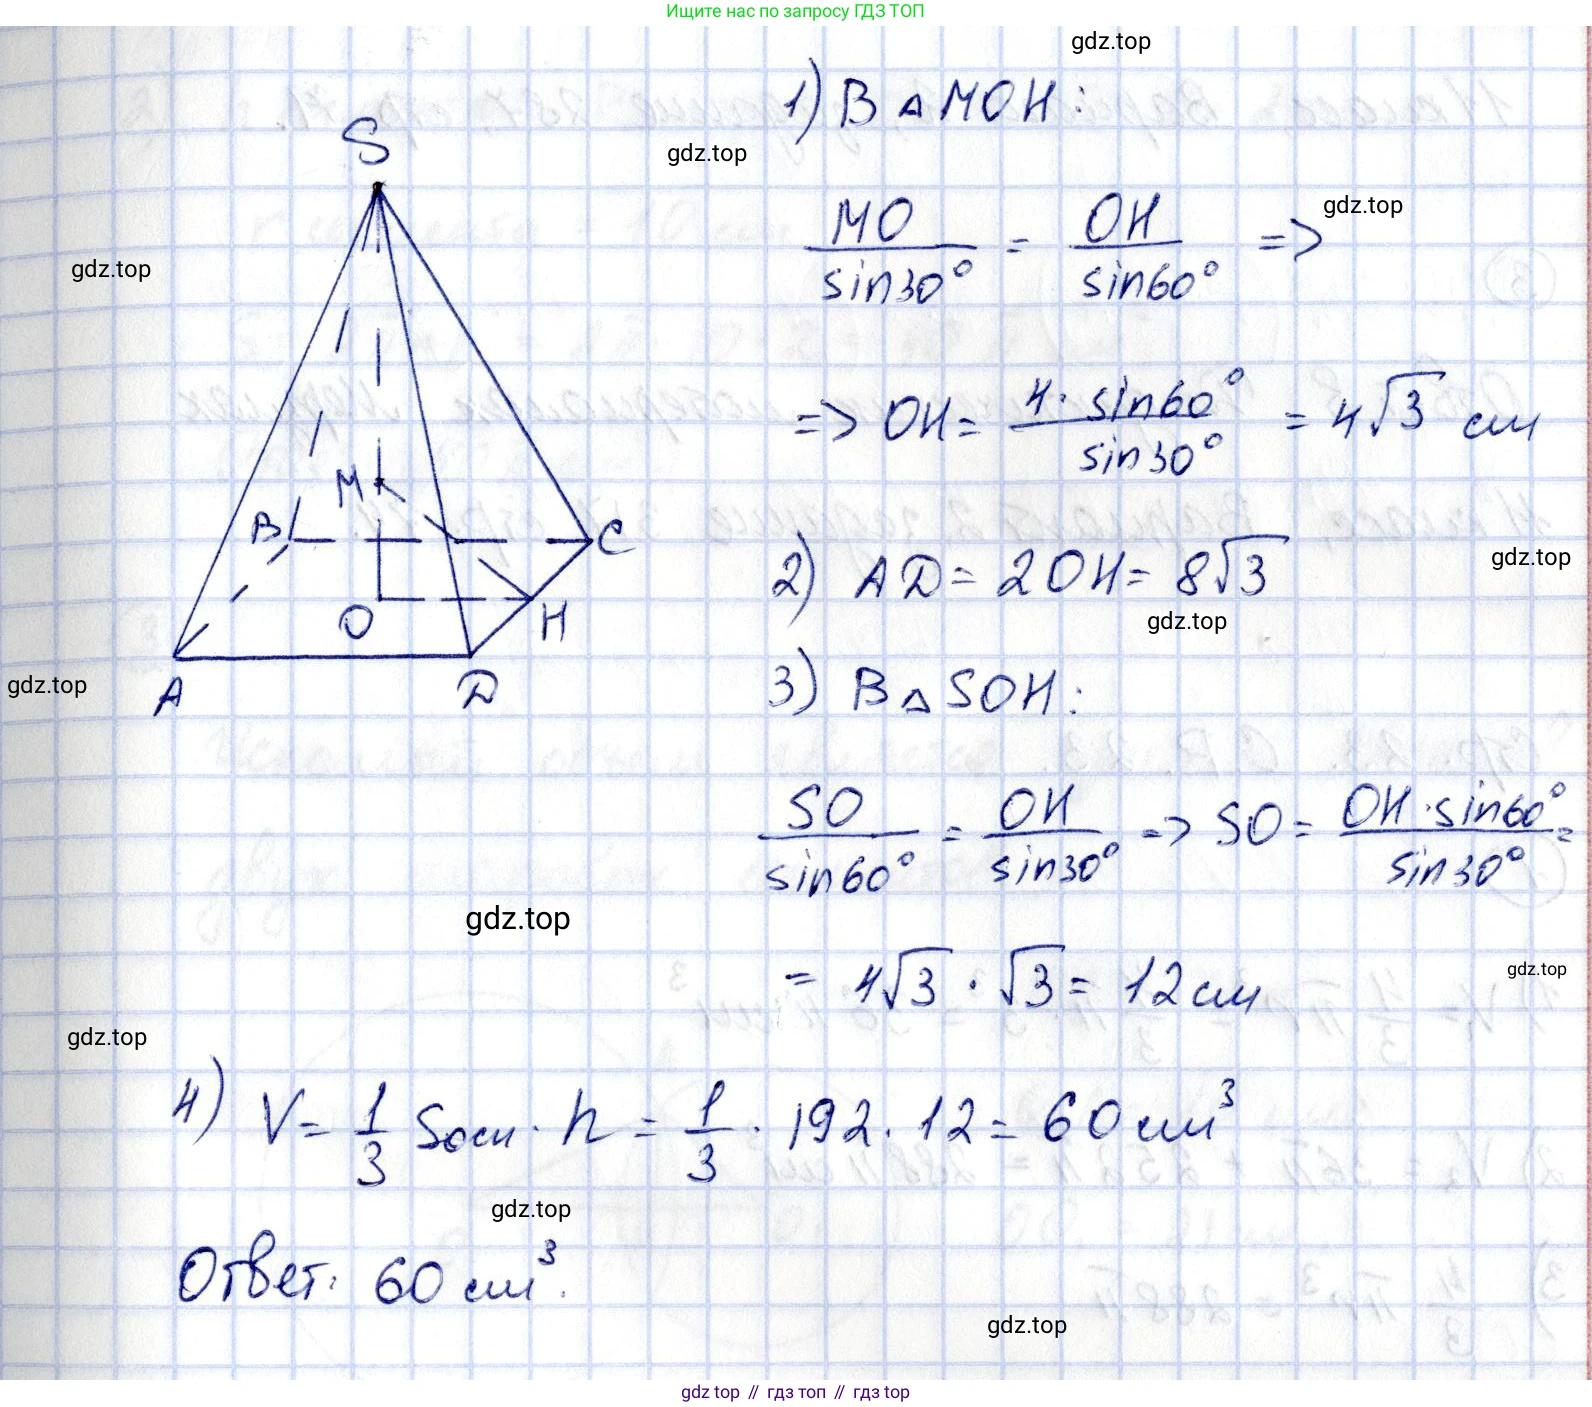 Ищите нас по запросу ГДЗ ТОП
gdz.top
1) В △MOH:
gdz.top
S
MO/sin30° = OH/sin60° =>
gdz.top
gdz.top
=> OH = 4·sin60°/sin30° = 4√3 см
M
B
C
gdz.top
2) AD = 2OH = 8√3
gdz.top
O
H
3) В △SOH:
gdz.top
A
D
SO/sin60° = OH/sin30° => SO = OH·sin60°/sin30° =
gdz.top
= 4√3 · √3 = 12 см
gdz.top
gdz.top
4) V = 1/3 Sосн · h = 1/3 · 192 · 12 = 60 см³
gdz.top
Ответ: 60 см³.
gdz.top
gdz top // гдз топ // gdz top